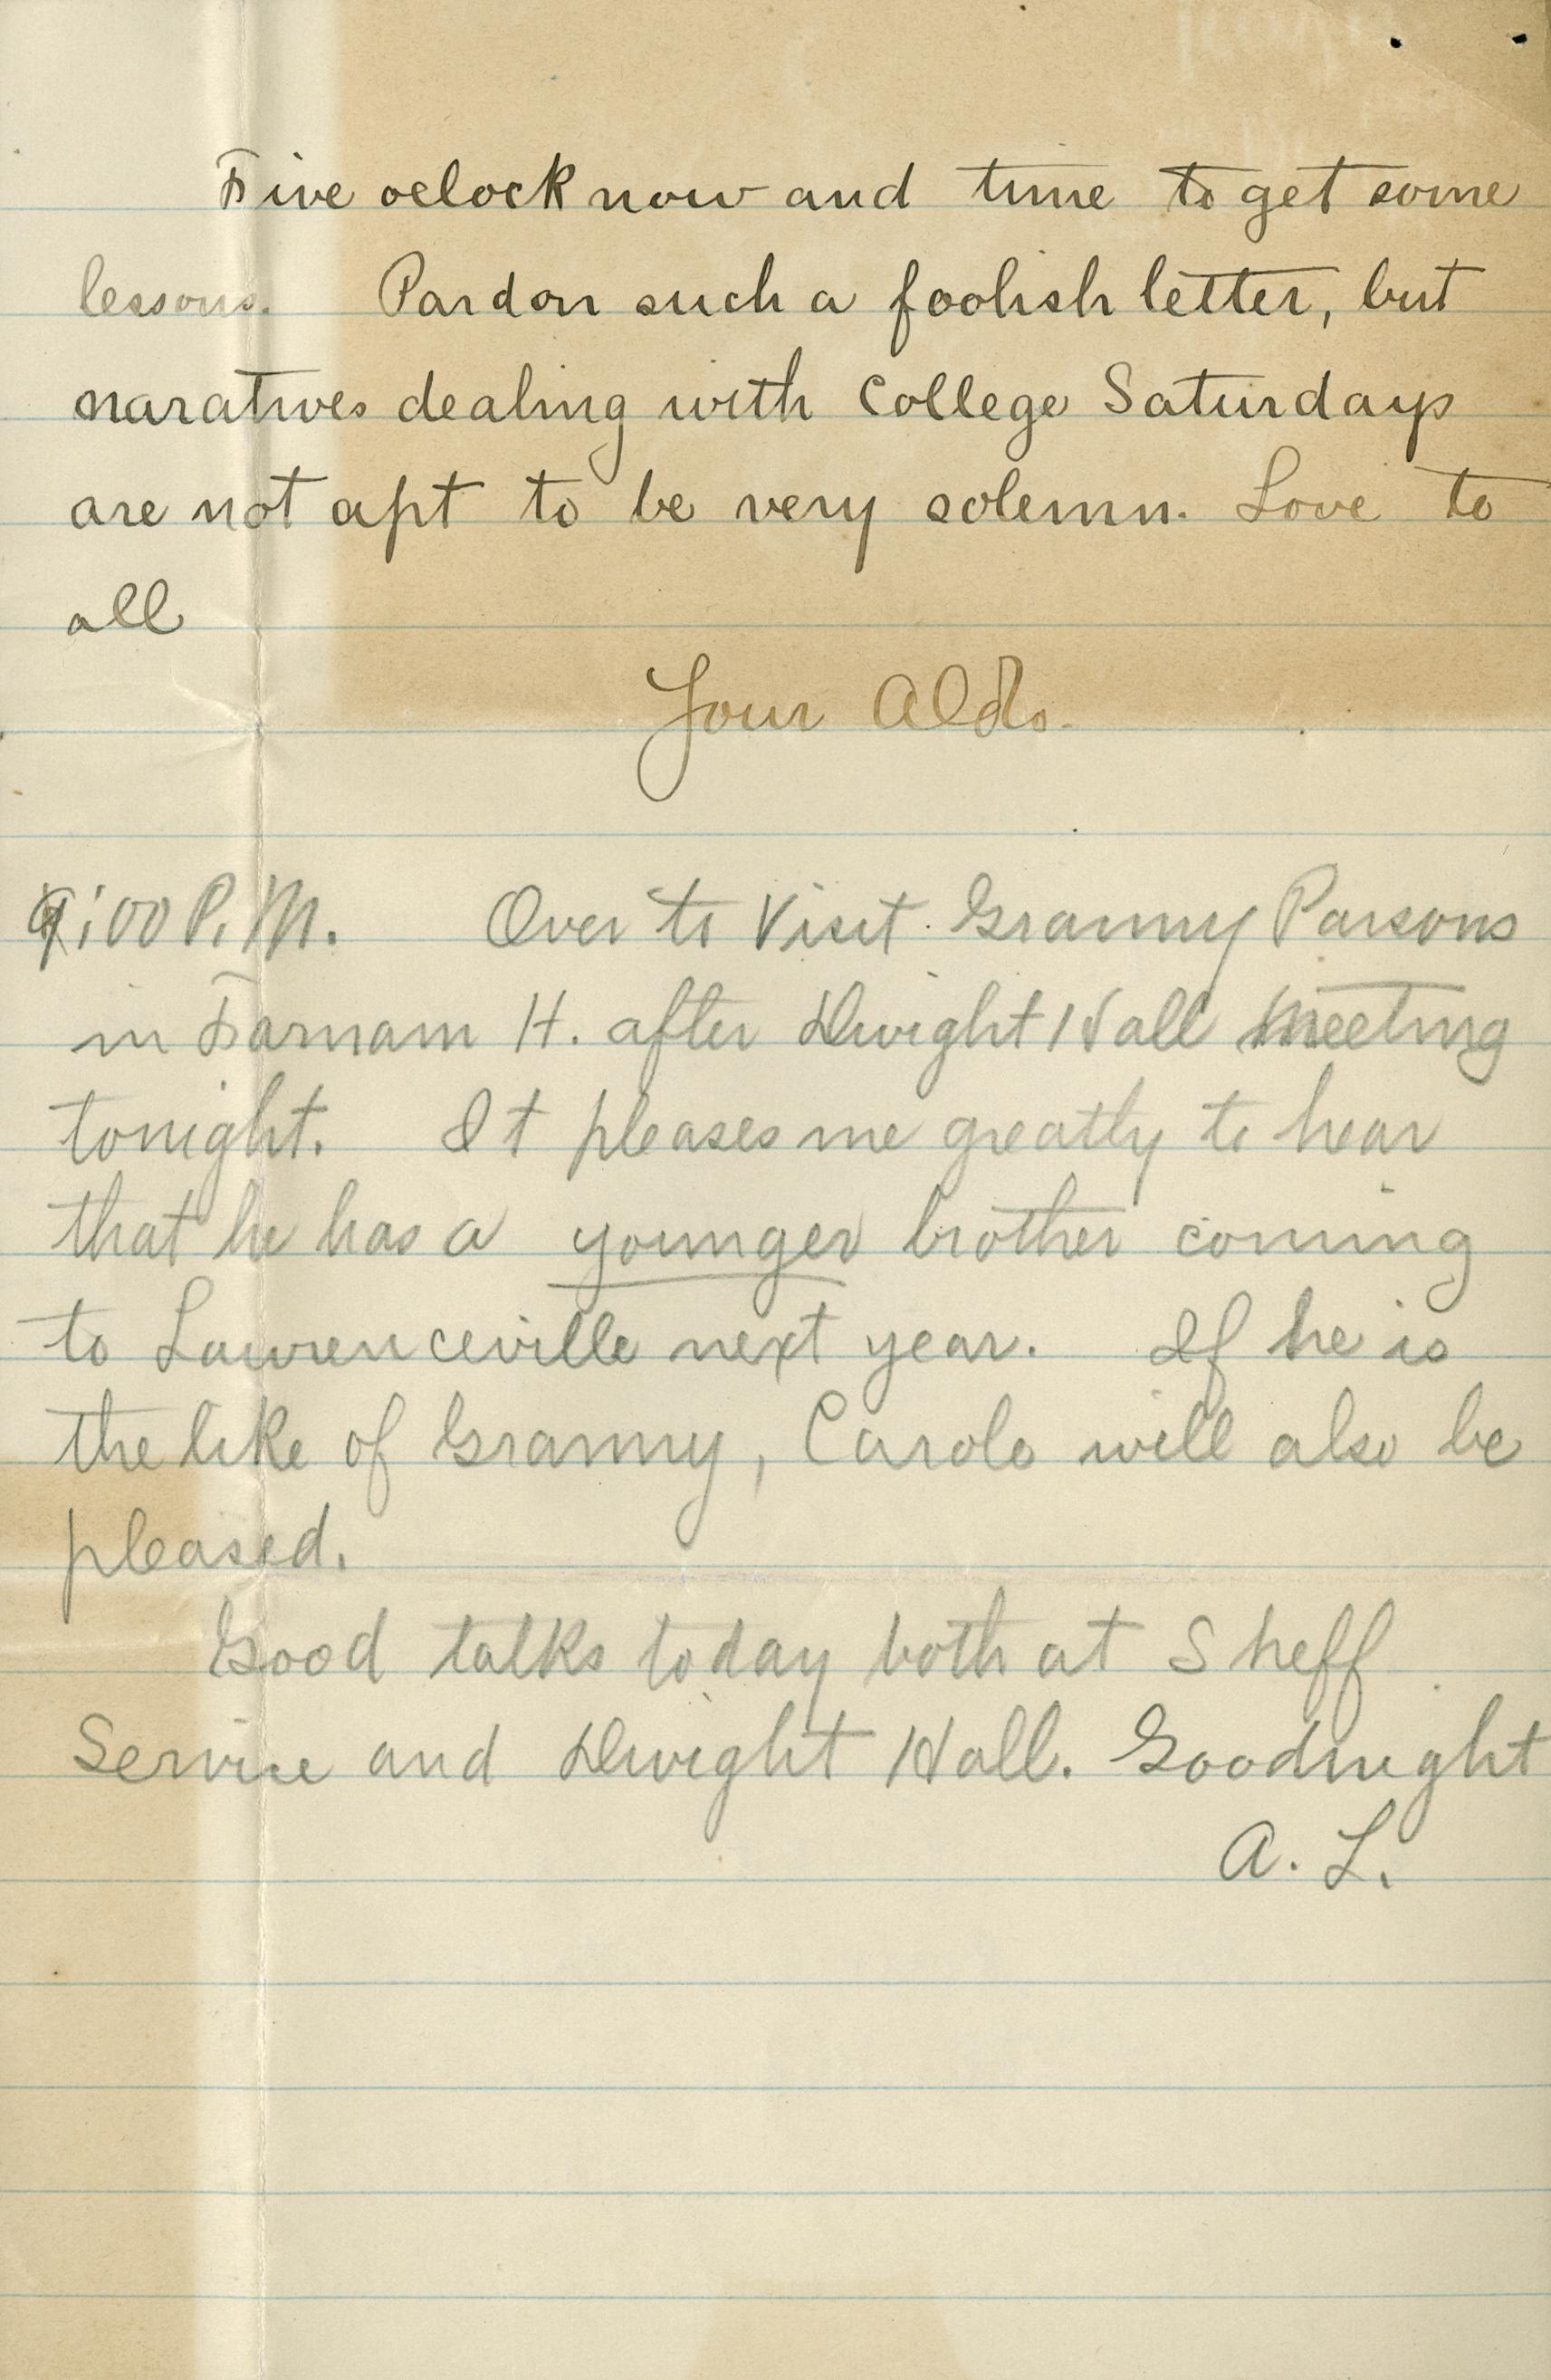 Five oclock now and time to get some
lessons. Pardon such a foolish letter, but
naratives dealing with College Saturdays
are not apt to be very solemn. Love to
all
Your Aldo.
9:00 P.M. Over to Visit Granny Parsons
in Farnam H. after Dwight Hall Meeting
tonight. It pleases me greatly to hear
that he has a younger brother coming
to Lawrenceville next year. If he is
the like of Granny, Carolo will also be
pleased.
Good talks today both at Sheff
Service and Dwight Hall. Goodnight
A. L.